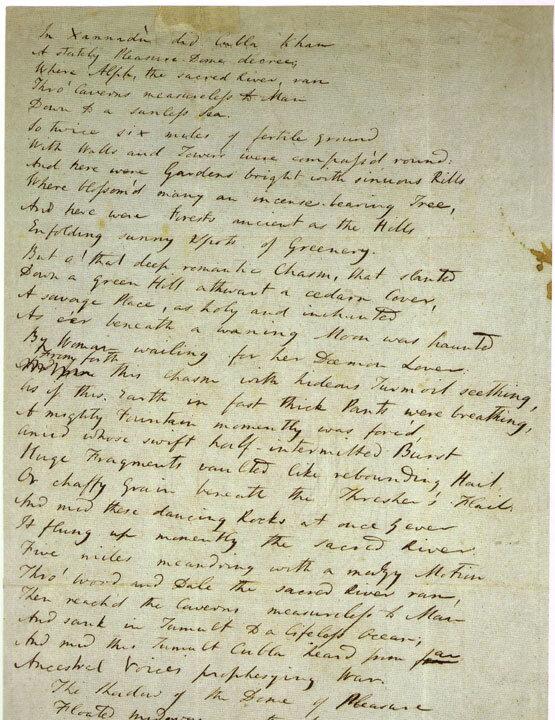 In Xannadù did Cubla Khan
A stately Pleasure-Dome decree;
Where Alph, the sacred River, ran
Thro' Caverns measureless to Man
Down to a sunless Sea.
So twice six miles of fertile ground
With Walls and Towers were compass'd round:
And here were Gardens bright with sinuous Rills
Where blossom'd many an incense-bearing Tree,
And here were Forests ancient as the Hills
Enfolding sunny Spots of Greenery.
But o! that deep romantic Chasm, that slanted
Down a green Hill athwart a cedarn Cover,
A savage Place, as holy and inchanted
As e'er beneath a waning Moon was haunted
By Woman wailing for her Dæmon Lover:
From forth
this Chasm with hideous Turmoil seething,
As if this Earth in fast thick Pants were breathing,
A mighty Fountain momently was forc'd
Amid whose swift half-intermitted Burst
Huge Fragments vaulted like rebounding Hail,
Or chaffy Grain beneath the Thresher's Flail.
And mid these dancing Rocks at once & ever
It flung up momently the sacred River.
Five miles meandring with a mazy Motion
Thro' Wood and Dale the sacred River ran,
Then reach'd the Caverns measureless to Man
And sank in Tumult to a lifeless Ocean;
And mid this Tumult Cubla heard from far
Ancestral Voices prophesying War.
The Shadow of the Dome of Pleasure
Floated midway